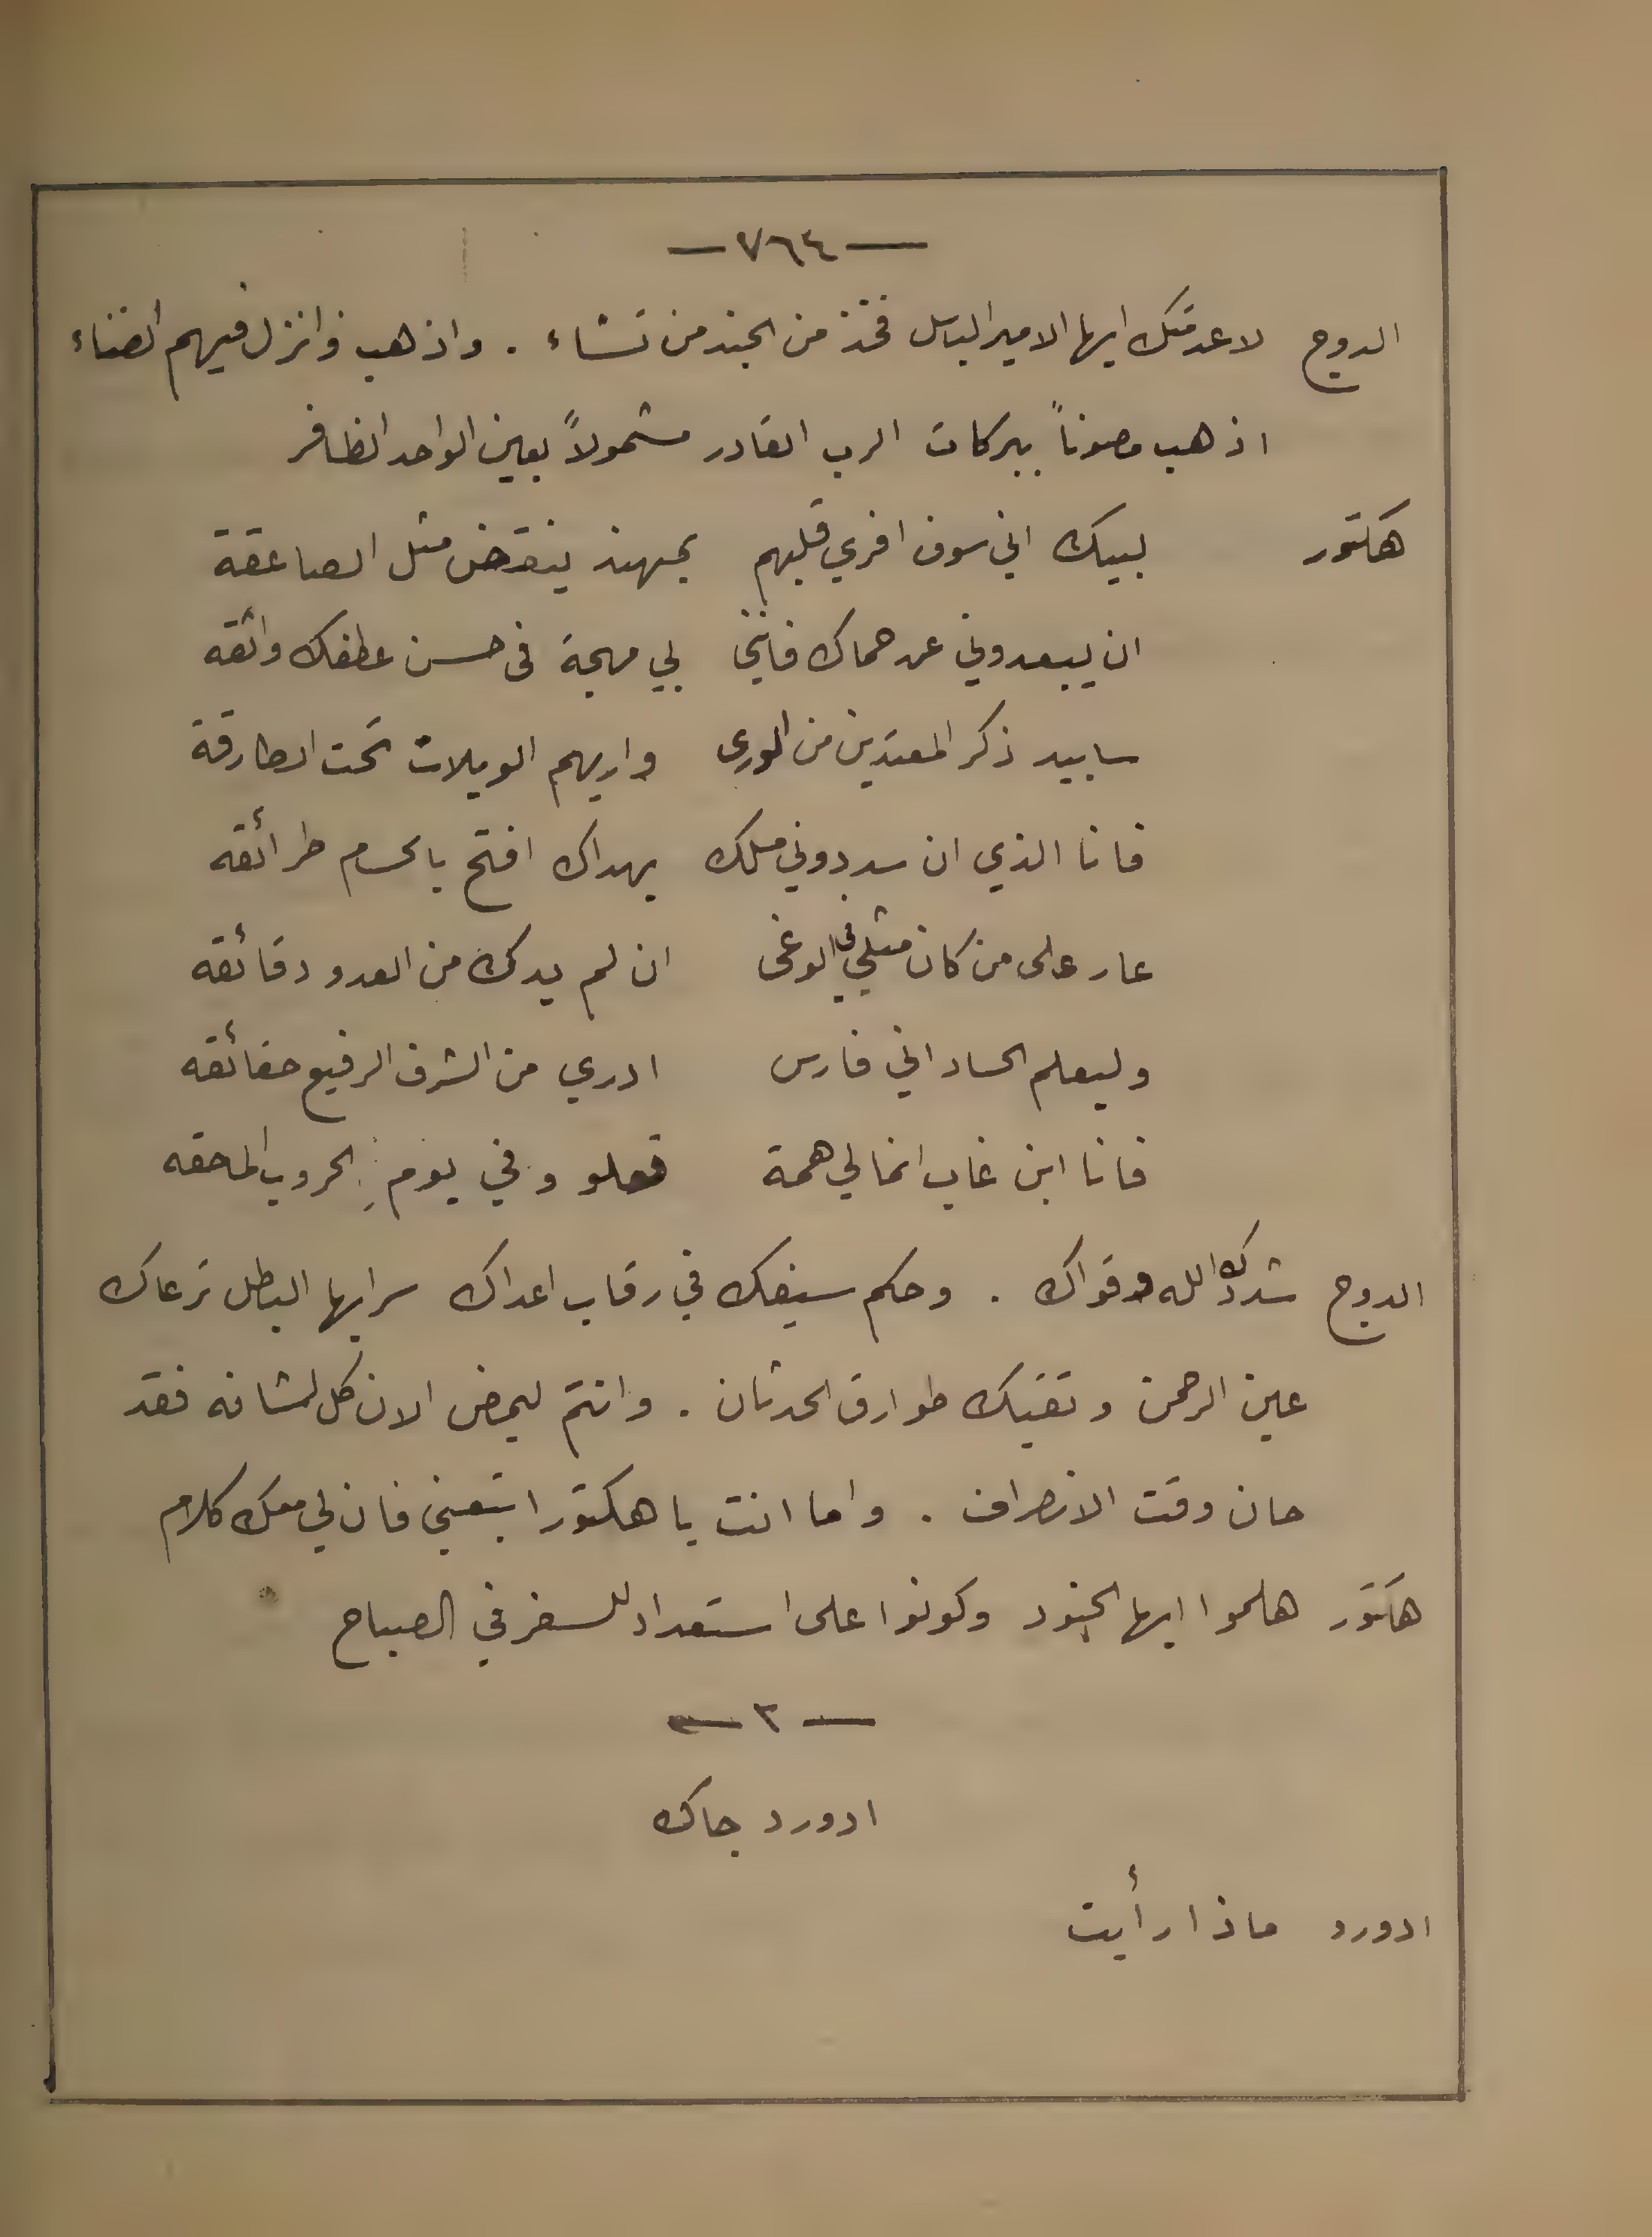 — ٧٦٤ —
الدوج لاعدمتك ايها الامير الباسل فخذ من الجند من تشاء . واذهب وانزل فيهم الفناء
اذهب مصوناً ببركات الرب القادر مشمولاً بعين الواحد الظافر
هكتور لبيك اني سوف افري قلبهم بمهند ينقض مثل الصاعقة
ان يبعدوني عن حماك فانني لي مهجة في حسن عطفك واثقه
سابيد ذكر المعتدين من الورى واريهم الويلات تحت الطارقة
فانا الذي ان سددوني مسلك بهداك افتح بالحسام طرائقه
عار على من كان مثلي في الوغى ان لم يدك من العدو دقائقه
وليعلم الحساد اني فارس ادري من الشرف الرفيع حقائقه
فانا ابن غاب انما لي همة تعلو وفي يوم الحروب الماحقه
الدوج شددك الله وقواك . وحكم سيفك في رقاب اعداك سر ايها البطل ترعاك
عين الرحمن وتقيك طوارق الحدثان . وانتم ليمض الان كل لشانه فقد
حان وقت الانصراف . واما انت يا هكتور اتبعني فان لي معك كلام
هكتور هلموا ايها الجنود وكونوا على استعداد للسفر في الصباح
— ٣ —
ادورد جاك
ادورد ماذا رأيت